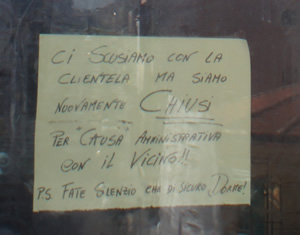 CI SCUSIAMO CON LA
CLIENTELA MA SIAMO
NUOVAMENTE CHIUSI
PER "CAUSA" AMMINISTRATIVA
CON IL VICINO!!
P.S. FATE SILENZIO CHE DI SICURO DORME!